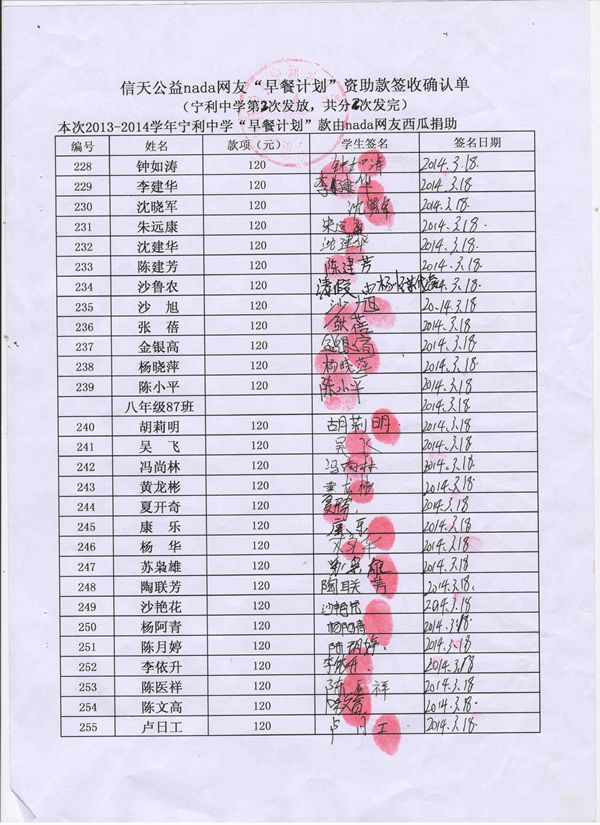 信天公益nada网友“早餐计划”资助款签收确认单
(宁利中学第2次发放，共分2次发完)
本次2013-2014学年宁利中学“早餐计划”款由nada网友西瓜捐助
编号 姓名 款项（元） 学生签名 签名日期
228 钟如涛 120 钟如涛 2014.3.18.
229 李建华 120 李建华 2014.3.18.
230 沈晓军 120 沈晓军 2014.3.18
231 朱远康 120 朱远康 2014.3.18.
232 沈建华 120 沈建华 2014.3.18.
233 陈建芳 120 陈建芳 2014.3.18.
234 沙鲁农 120 请假 2014.3.18.
235 沙旭 120 沙旭 2014.3.18.
236 张蓓 120 张蓓 2014.3.18
237 金银高 120 金银高 2014.3.18.
238 杨晓萍 120 杨晓萍 2014.3.18
239 陈小平 120 陈小平 2014.3.18
八年级87班 2014.3.18
240 胡莉明 120 胡莉明 2014.3.18
241 吴飞 120 吴飞 2014.3.18
242 冯尚林 120 冯尚林 2014.3.18
243 黄龙彬 120 2014.3.18
244 夏开奇 120 2014.3.18
245 康乐 120 康乐 2014.3.18
246 杨华 120 2014.3.18
247 苏枭雄 120 苏枭雄 2014.3.18
248 陶联芳 120 陶联芳 2014.3.18
249 沙艳花 120 沙艳花 2014.3.18
250 杨阿青 120 杨阿青 2014.3.18
251 陈月婷 120 陈月婷 2014.3.18.
252 李依升 120 李依升 2014.3.18
253 陈医祥 120 陈医祥 2014.3.18
254 陈文高 120 2014.3.18
255 卢日工 120 卢日工 2014.3.18